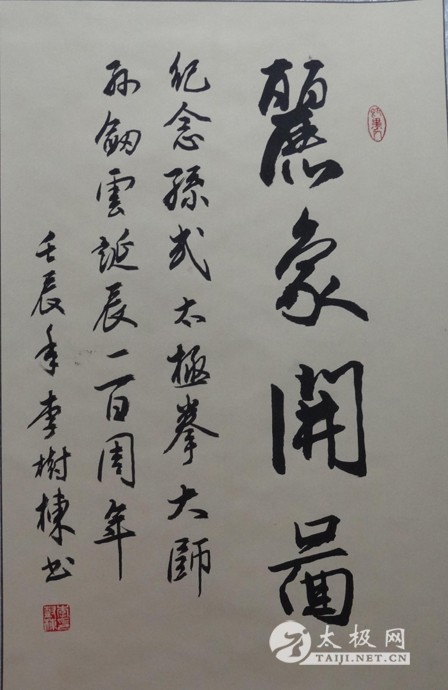 麗象開啚
紀念孫式太極拳大師
孙劍雲誕辰一百周年
壬辰年李樹棟书
太极网
TAIJI.NET.CN